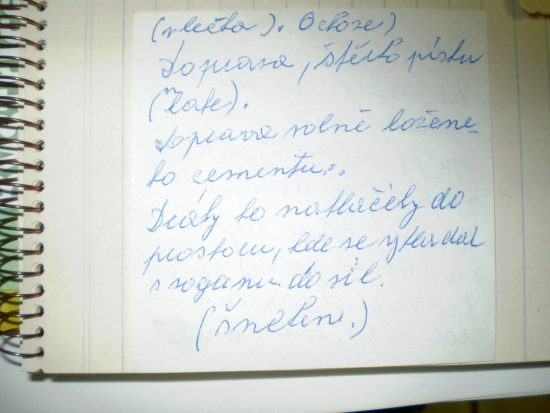 (vlečka). Ochoze)
Doprava, štěrko písku
(Zate).
Doprava volně ložené-
ho cementu..
Dráhy to natláčely do
prostoru, kde se vykládal
s vaganu do sil.
(šnekem.)